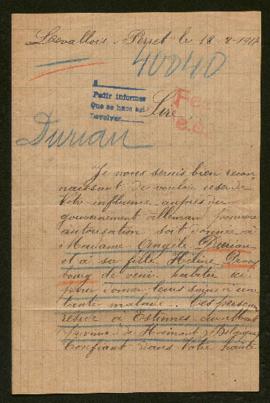 Levallois-Perret le 18
40040
Pedir informes
Que se hace así
devolver
Sire,
Durian
Je vous serais bien recon
naissant de vouloir user de
votre influence auprès du
gouvernement allemand pour
autorisation soit donnée à
Madame Angèle Durian
et à sa fille Hélène
de venir habiter
pour donner leurs soins à
tante malade. Ces person
à Estinnes au Mont
de Hainaut Belgique
Confiant dans votre haute